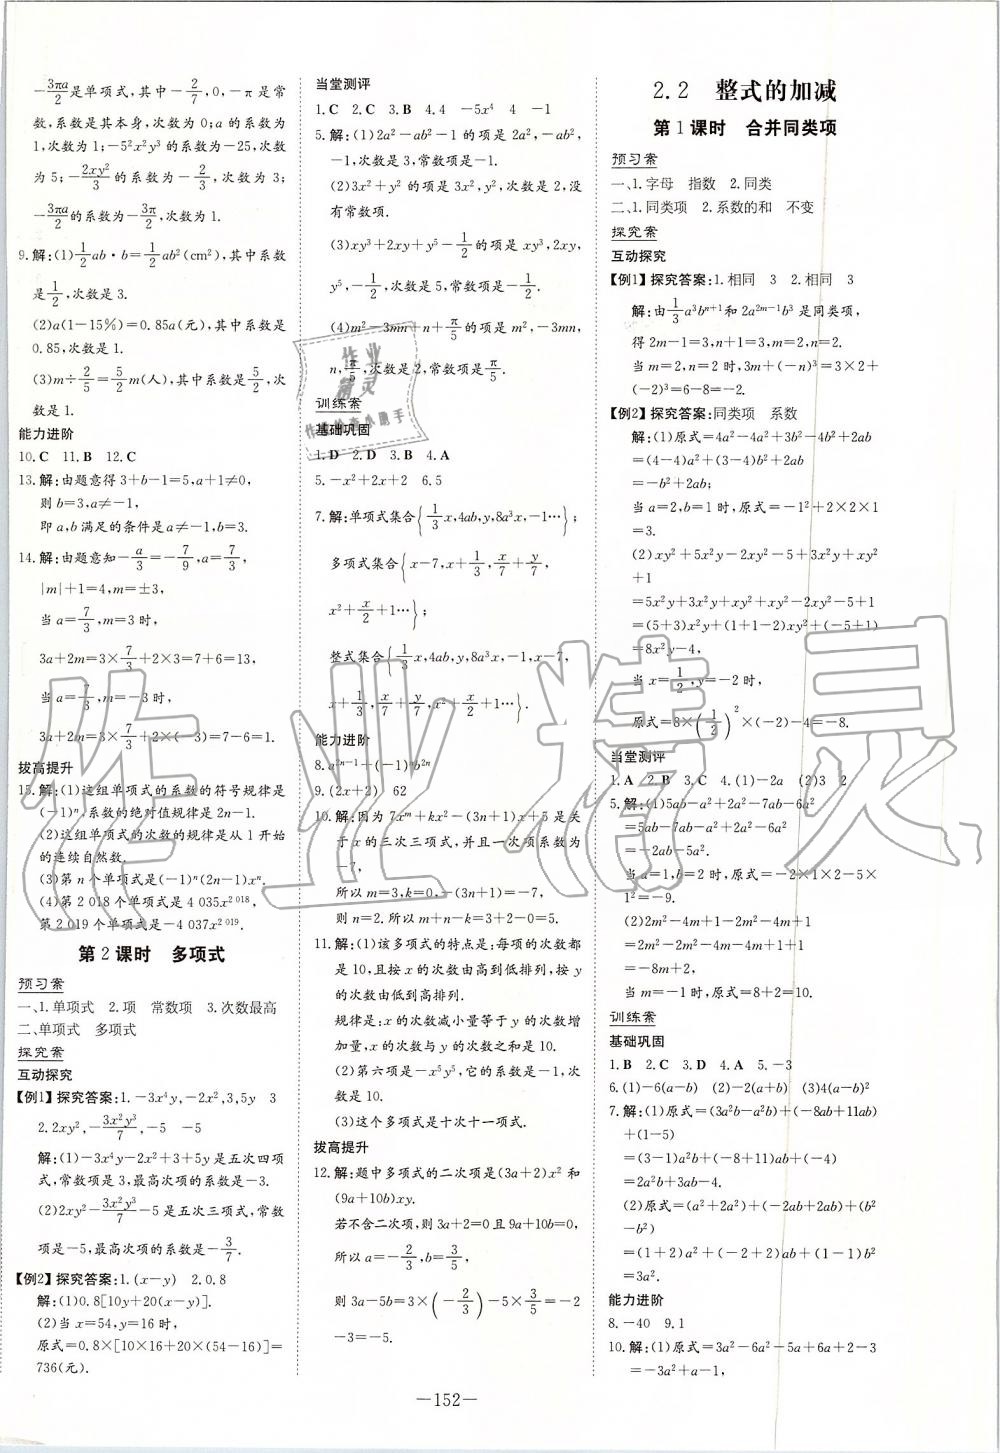 -3πa/2是单项式,其中-2/7,0,-π是常
数,系数是其本身,次数为0;a的系数为
1,次数为1;-5²x²y³的系数为-25,次数
为5;-2xy²/3的系数为-2/3,次数为3;
-3πa/2的系数为-3π/2,次数为1.
9.解:(1)1/2ab·b=1/2ab²(cm²),其中系数
是1/2,次数是3.
(2)a(1-15%)=0.85a(元),其中系数是
0.85,次数是1.
(3)m÷2/5=5/2m(人),其中系数是5/2,次
数是1.
能力进阶
10.C 11.B 12.C
13.解:由题意得3+b-1=5,a+1≠0,
则b=3,a≠-1,
即a,b满足的条件是a≠-1,b=3.
14.解:由题意知-a/3=-7/9,a=7/3,
|m|+1=4,m=±3,
当a=7/3,m=3时,
3a+2m=3×7/3+2×3=7+6=13,
当a=7/3,m=-3时,
3a+2m=3×7/3+2×(-3)=7-6=1.
拔高提升
15.解:(1)这组单项式的系数的符号规律是
(-1)ⁿ,系数的绝对值规律是2n-1.
(2)这组单项式的次数的规律是从1开始
的连续自然数.
(3)第n个单项式是(-1)ⁿ(2n-1)xⁿ.
(4)第2 018个单项式是4 035x²⁰¹⁸,
第2 019个单项式是-4 037x²⁰¹⁹.
第2课时 多项式
预习案
一、1.单项式 2.项 常数项 3.次数最高
二、单项式 多项式
探究案
互动探究
【例1】探究答案:1.-3x⁴y,-2x²,3,5y 3
2.2xy²,-3x²y³/7,-5 -5
解:(1)-3x⁴y-2x²+3+5y是五次四项
式,常数项是3,最高次项的系数是-3.
(2)2xy²-3x²y³/7-5是五次三项式,常数
项是-5,最高次项的系数是-3/7.
【例2】探究答案:1.(x-y) 2.0.8
解:(1)0.8[10y+20(x-y)].
(2)当x=54,y=16时,
原式=0.8×[10×16+20×(54-16)]=
736(元).
当堂测评
1.C 2.C 3.B 4.4 -5x⁴ 4 -1
5.解:(1)2a²-ab²-1的项是2a²,-ab²,
-1,次数是3,常数项是-1.
(2)3x²+y²的项是3x²,y²,次数是2,没
有常数项.
(3)xy³+2xy+y⁵-1/2的项是xy³,2xy,
y⁵,-1/2,次数是5,常数项是-1/2.
(4)m²-3mn+n+π/5的项是m²,-3mn,
n,π/5,次数是2,常数项是π/5.
训练案
基础巩固
1.D 2.D 3.B 4.A
5.-x²+2x+2 6.5
7.解:单项式集合{1/3x,4ab,y,8a³x,-1…};
多项式集合{x-7,x+1/3,x/7+y/7,
x²+x/2+1…};
整式集合{1/3x,4ab,y,8a³x,-1,x-7,
x+1/3,x/7+y/7,x²+x/2+1…}.
能力进阶
8.a²ⁿ⁻¹+(-1)ⁿb²ⁿ
9.(2x+2) 62
10.解:因为7xᵐ+kx²-(3n+1)x+5是关
于x的三次三项式,并且一次项系数为
-7,
所以m=3,k=0,-(3n+1)=-7,
则n=2.所以m+n-k=3+2-0=5.
11.解:(1)该多项式的特点是:每项的次数都
是10,且按x的次数由高到低排列,按y
的次数由低到高排列.
规律是:x的次数减小量等于y的次数增
加量,x的次数与y的次数之和是10.
(2)第六项是-x⁵y⁵,它的系数是-1,次
数是10.
(3)这个多项式是十次十一项式.
拔高提升
12.解:题中多项式的二次项是(3a+2)x²和
(9a+10b)xy.
若不含二次项,则3a+2=0且9a+10b=0,
所以a=-2/3,b=3/5,
则3a-5b=3×(-2/3)-5×3/5=-2
-3=-5.
2.2 整式的加减
第1课时 合并同类项
预习案
一、1.字母 指数 2.同类
二、1.同类项 2.系数的和 不变
探究案
互动探究
【例1】探究答案:1.相同 3 2.相同 3
解:由1/3a³bⁿ⁺¹和2a²ᵐ⁻¹b³是同类项,
得2m-1=3,n+1=3,m=2,n=2.
当m=2,n=2时,3m+(-n)³=3×2+
(-2)³=6-8=-2.
【例2】探究答案:同类项 系数
解:(1)原式=4a²-4a²+3b²-4b²+2ab
=(4-4)a²+(3-4)b²+2ab
=-b²+2ab;
当a=2,b=1时,原式=-1²+2×2×1
=3.
(2)xy²+5x²y-2xy²-5+3x²y+xy²
+1
=5x²y+3x²y+xy²+xy²-2xy²-5+1
=(5+3)x²y+(1+1-2)xy²+(-5+1)
=8x²y-4,
当x=1/2,y=-2时,
原式=8×(1/2)²×(-2)-4=-8.
当堂测评
1.A 2.B 3.C 4.(1)-2a (2)3 2
5.解:(1)5ab-a²+2a²-7ab-6a²
=5ab-7ab-a²+2a²-6a²
=-2ab-5a².
当a=1,b=2时,原式=-2×1×2-5×
1²=-9.
(2)2m²-4m+1-2m²-4m+1
=2m²-2m²-4m-4m+1+1
=-8m+2,
当m=-1时,原式=8+2=10.
训练案
基础巩固
1.B 2.C 3.D 4.A 5.-3
6.(1)-6(a-b) (2)-2(a+b) (3)4(a-b)²
7.解:(1)原式=(3a²b-a²b)+(-8ab+11ab)
+(1-5)
=(3-1)a²b+(-8+11)ab+(1-5)
=2a²b+3ab-4.
(2)原式=(a²+2a²)+(-2ab+2ab)+(b²
-b²)
=(1+2)a²+(-2+2)ab+(1-1)b²
=3a².
能力进阶
8.-40 9.1
10.解:(1)原式=3a²-6a²-5a+6a+2-3
=-3a²+a-1,
-152-
作业精灵